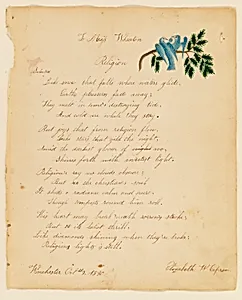 To Abby Wheaton
Religion
Like snow that falls where waters glide,
Earth's pleasures fade away;
They melt in time's destroying tide,
And cold are while they stay.
But joys that from religion flow,
Like stars that gild the night,
Amid the darkest gloom of
Shines forth with sweetest light.
Religion's ray no clouds obscure;
But o'er the christian's soul
It sheds a radiance calm and pure,
Though tempests round him roll.
His heart may break 'neath sorrow's stroke,
But to its latest thrill,
Like diamonds shining when they're broke,
Religion lights it still.
Oct
Elizabeth W